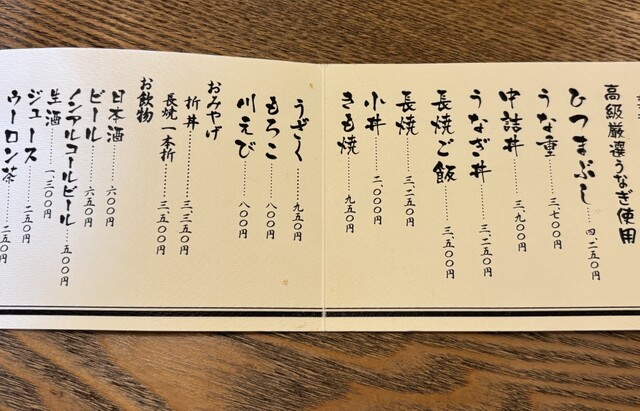 高級厳選うなぎ使用
ひつまぶし……四、二五〇円
うな重……三、七〇〇円
中詰丼……三、九〇〇円
うなぎ丼……三、二五〇円
長焼ご飯……三、五〇〇円
長焼……三、二五〇円
小丼……二、〇〇〇円
きも焼……九五〇円
うざく……九五〇円
もろこ……八〇〇円
川えび……八〇〇円
おみやげ
折丼……三、三五〇円
長焼一本折……三、五〇〇円
お飲物
日本酒……六〇〇円
ビール……六五〇円
ノンアルコールビール……五〇〇円
生酒……一、三〇〇円
ジュース……二五〇円
ウーロン茶……二五〇円